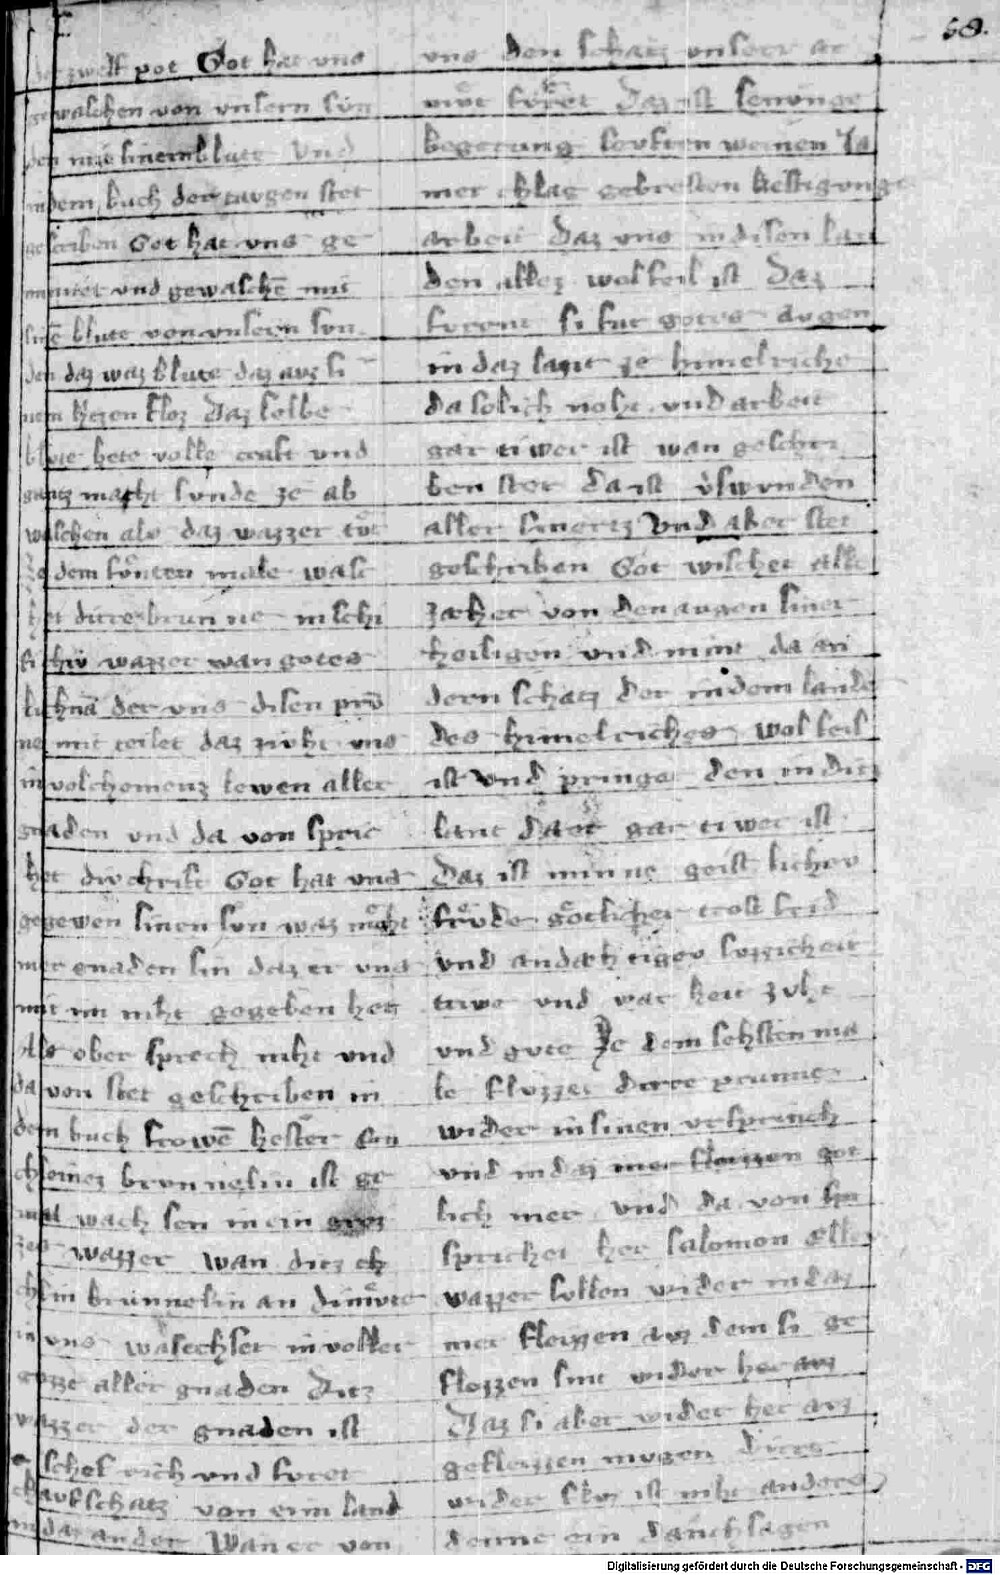 68.
zwelf pot Got hat vns
gewaschen von vnsern sün
den mit sinem blute Vnd
in dem buch der taugen stet
geschriben Got hat vns ge
minnet vnd gewaschē mit
sinē blute von vnsern sun
den daz waz blute daz auz si
nem herzen floz Daz selbe
blute hete volle craft vnd
gantz macht sunde ze ab
waschen als daz wazzer tůt
Ze dem fůnten male wasc
het dirre brunne
wazzer wan gotes
der vns disen prv̄
ne mit teilet daz zivht vns
in volchomenz lewen aller
gnaden vnd da von spric
het div schrift Got hat vns
gegewen sinen sun waz mőht
mer gnaden sin daz er vns
mit im niht gegeben het
Als ober sprech niht vnd
da von stet geschriben in
dem buch frowē hester Ein
chleinez brunnelin ist ge
wachsen in ein groz
zes wazzer wan ditz
brunnelin an
in vns wasechset in voller
aller gnaden Ditz
wazzer der gnaden ist
schef rich vnd furet
kaufschatz von eim land
in daz ander Wan ez von
vns den schatz vnserr ar
můt fůret Daz ist senunge
begerung seuften weinen Ja
mer chlag gebresten kestigunge
arbeit Daz vns in disen lan
den allez wolfeil ist Daz
furent si fur gotes augen
in daz lant ze himelriche
da solich noht vnd arbeit
gar tiwer ist wan geschri
ben stet da ist v̓swunden
aller smertz Vnd aber stet
geschriben Got wischet alle
zæher von den augen siner
heiligen vnd nimt da an
dern schatz der in dem lande
des himelriches wolfeil
ist Vnd pringet den in ditz
lant da er gar tiwer ist
Daz ist minne geistlicher
frőde gőtlicher trost frid
vnd andæhtiger
triwe vnd warheit zuht
vnd gute Ze dem sehsten ma
le fluzzet dirre prunne
wider in sinen vrsprinch
vnd in daz mer flozzen got
lich mer vnd da von
sprichet her salomon Elleu
wazzer sullen wider in daz
mer fliezzen auz dem si ge
flozzen sint wider her auz
Daz si aber wider her auz
gefliezzen mugen Dirre
wider fluz ist niht anders
denne ein danchsagen
Digitalisierung gefördert durch die Deutsche Forschungsgemeinschaft - DFG